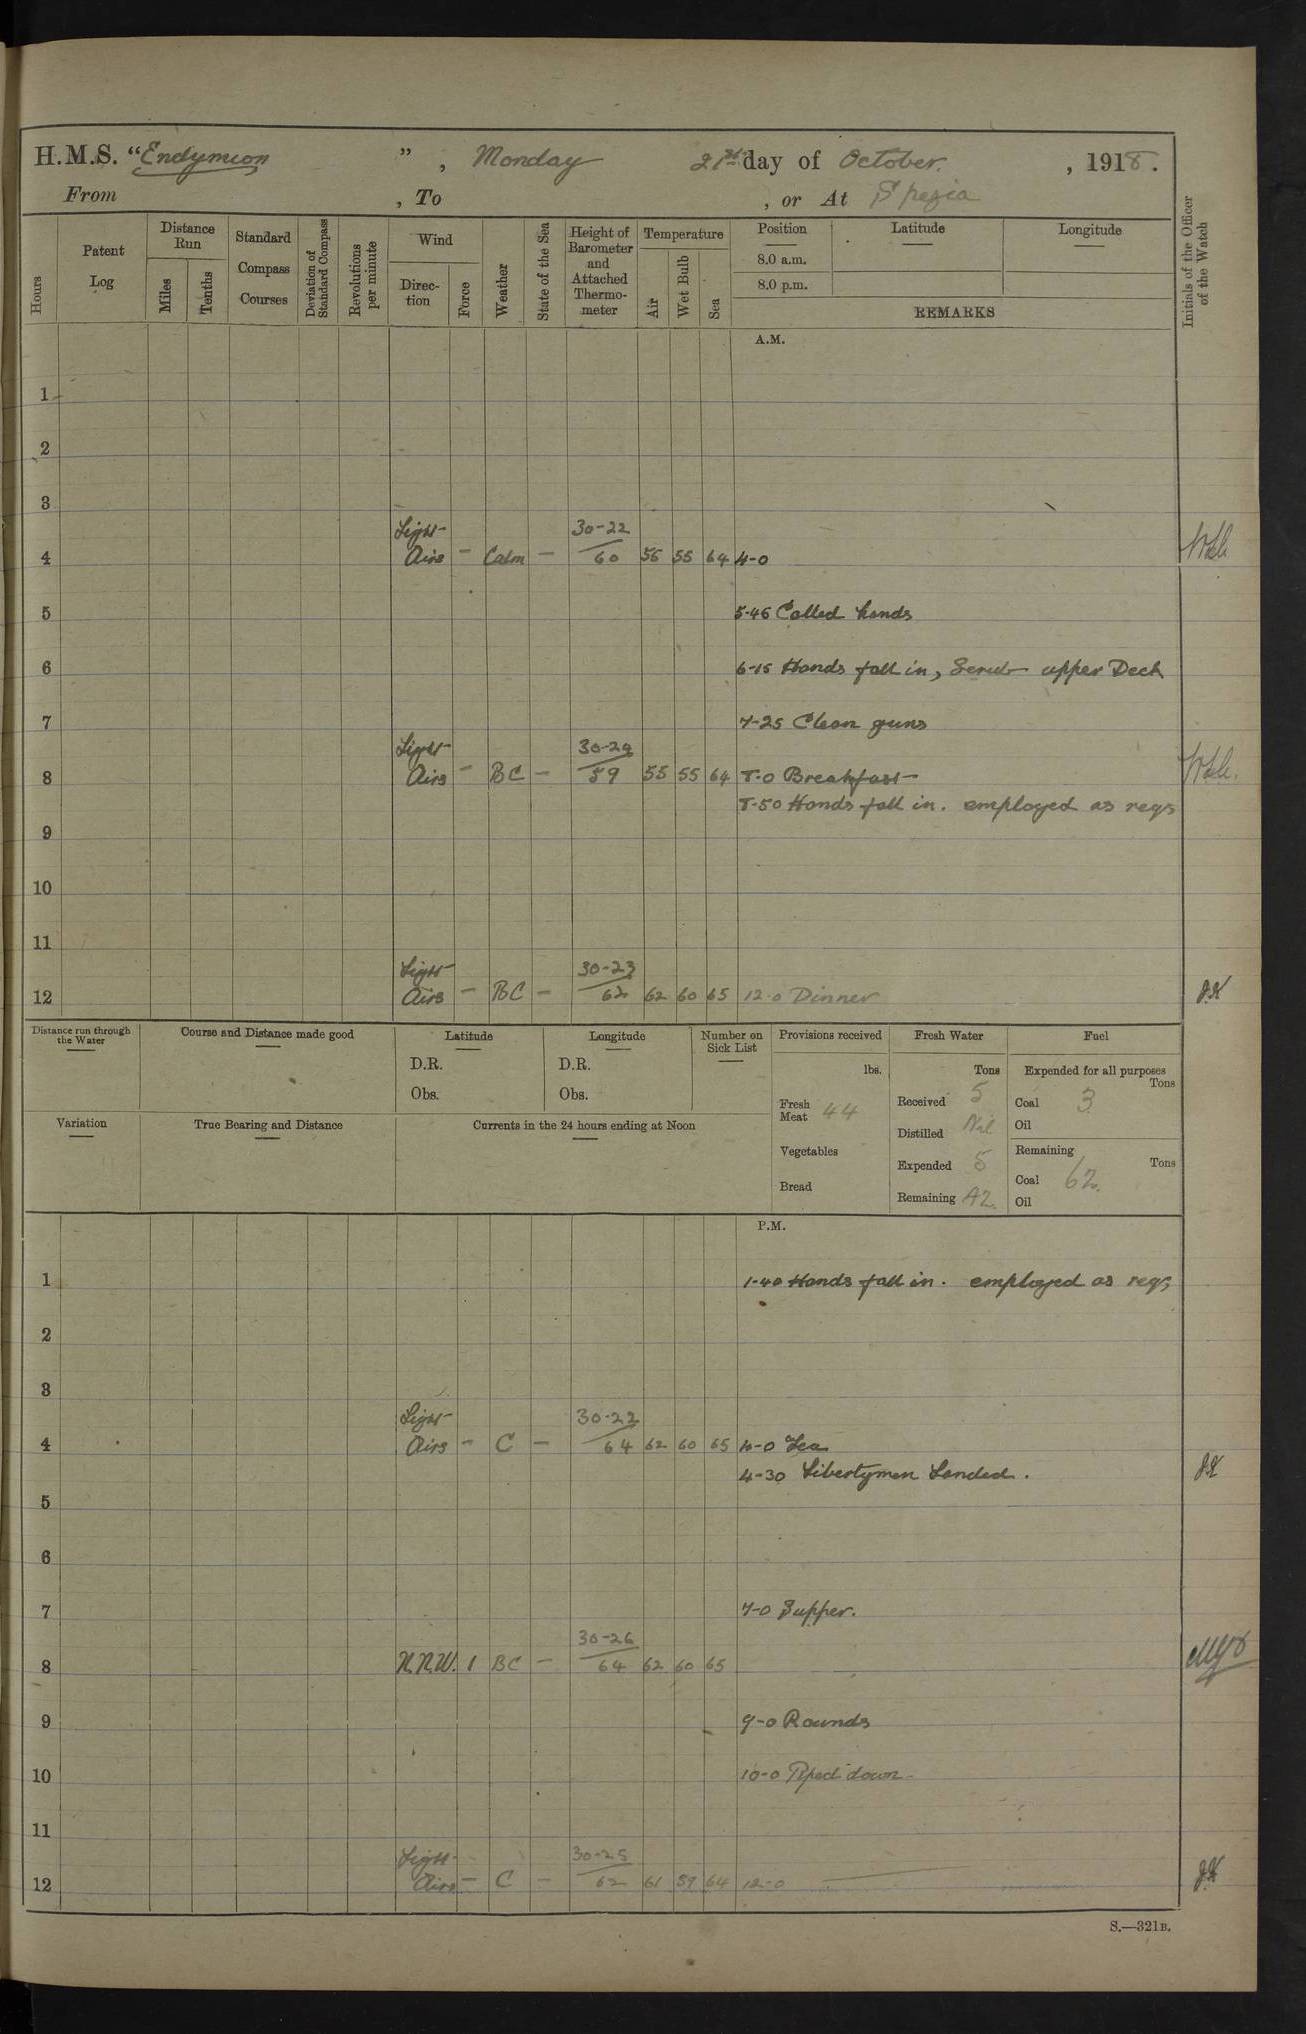 H.M.S. "Endymion", Monday 21st day of October, 1918.
From , To , or At Spezia
Hours
Patent Log
Distance Run
Miles
Tenths
Standard Compass Courses
Deviation of Standard Compass
Revolutions per minute
Wind
Direction
Force
Weather
State of the Sea
Height of Barometer and Attached Thermometer
Temperature
Air
Wet Bulb
Sea
Position
8.0 a.m.
8.0 p.m.
Latitude
Longitude
REMARKS
Initials of the Officer of the Watch
A.M.
1
2
3
Light 30-22
4 Airs - Calm - 60 56 55 64 4-0
5 5-45 Called hands
6 6-15 Hands fall in, Scrub upper Deck
7 7-25 Clean guns
Light 30-24
8 Airs - BC - 59 55 55 64 8-0 Breakfast
8-50 Hands fall in. employed as reqs
9
10
11
Light 30-23
12 Airs - BC - 62 62 60 65 12-0 Dinner
Distance run through the Water
Course and Distance made good
Latitude
D.R.
Obs.
Longitude
D.R.
Obs.
Number on Sick List
Provisions received
lbs.
Fresh Meat 44
Vegetables
Bread
Fresh Water
Tons
Received 5
Distilled Nil
Expended 5
Remaining 42
Fuel
Expended for all purposes
Tons
Coal 3
Oil
Remaining
Tons
Coal 62
Oil
Variation
True Bearing and Distance
Currents in the 24 hours ending at Noon
P.M.
1 1-40 Hands fall in. employed as reqs
2
3
Light 30-22
4 Airs - C - 64 62 60 65 4-0 Tea
4-30 Libertymen Landed.
5
6
7 7-0 Supper.
30-26
8 N.N.W. 1 BC - 64 62 60 65
9 9-0 Rounds
10 10-0 Piped down
11
Light 30-25
12 Airs - C - 62 61 59 64 12-0
S.—321B.